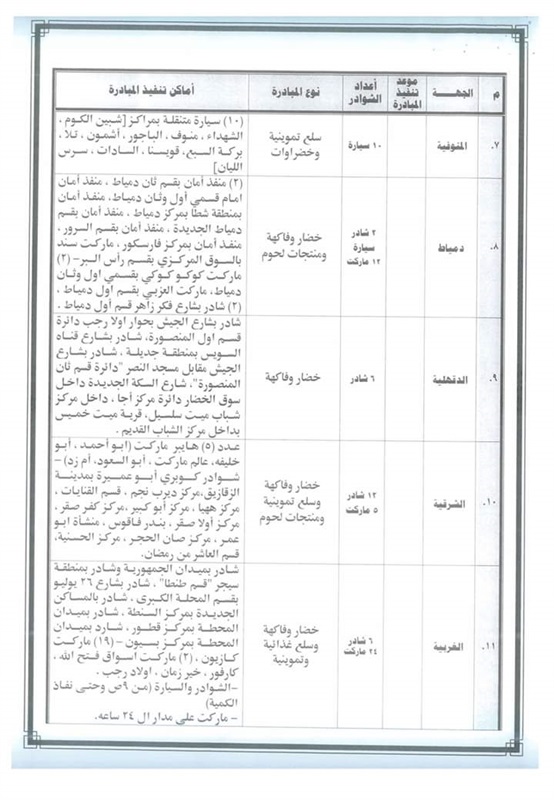 م
الجهـــة
موعد
تنفيذ
المبادرة
أعداد
الشوادر
نوع المبادرة
أماكن تنفيذ المبادرة
٧.
المنوفية
١٠ سيارة
سلع تموينية
وخضراوات
(١٠) سيارة متنقلة بمراكز [شبين الكوم ،
الشهداء ، منوف، الباجور، أشمون، تلا،
بركة السبع، قويسنا ، السادات ، سرس
الليان]
٨.
دمياط
٢ شادر
سيارة
١٢ ماركت
خضار وفاكهة
ومنتجات لحوم
(٢) منفذ أمان بقسم ثان دمياط ، منفذ أمان
امام قسمي أول وثان دمياط، منفذ أمان
بمنطقة شطا بمركز دمياط ، منفذ أمان بقسم
دمياط الجديدة ، منفذ أمان بقسم السرور ،
منفذ أمان بمركز فارسكور، ماركت سند
بالسوق المركزي بقسم رأس البر– (٢)
ماركت كوكو كوكي بقسمي اول وثان
دمياط، ماركت العزبي بقسم اول دمياط ،
(٢) شادر بشارع فكر زاهر قسم أول دمياط .
٩.
الدقهلية
٦ شادر
خضار وفاكهة
شادر بشارع الجيش بحوار اولا رجب دائرة
قسم اول المنصورة، شادر بشارع قناه
السويس بمنطقة جديلة ، شادر بشارع
الجيش مقابل مسجد النصر "دائرة قسم ثان
المنصورة"، شارع السكة الجديدة داخل
سوق الخضار دائرة مركز أجا ، داخل مركز
شباب ميت سلسيل، قرية ميت خميس
بداخل مركز الشباب القديم .
١٠.
الشرقية
١٢ شادر
٥ ماركت
خضار وفاكهة
وسلع تموينية
ومنتجات لحوم
عدد (٥) هايبر ماركت (ابو أحمد ، أبو
خليفه، عالم ماركت ، أبو السعود، أم زد) –
شوادر كوبري أبو عميرة بمدينة
الزقازيق،مركز ديرب نجم ، قسم القنايات ،
مركز ههيا ، مركز أبو كبير، مركز كفر صقر ،
مركز أولا صقر ، بندر فاقوس ، منشأة ابو
عمر ، مركز صان الحجر ، مركز الحسنية،
قسم العاشر من رمضان.
١١.
الغربية
٦ شادر
٢٤ ماركت
خضار وفاكهة
وسلع غذائية
وتموينية
شادر بميدان الجمهورية وشادر بمنطقة
سيجر "قم طنطا" ، شادر بشارع ٢٦ يوليو
بقم المحلة الكبرى ، شادر بالمساكن
الجديدة بمركز السنطة ، شادر بميدان
المحطة بمركز قطور ، شارد بميدان
المحطة بمركز بسيون – (١٩) ماركت
كازيون ، (٢) ماركت اسواق فتح الله ،
كارفور ، خير زمان ، اولاد رجب .
–الشوادر والسيارة (من ٩ص وحتى نفاذ
الكمية)
– ماركت على مدار ال ٢٤ ساعه.